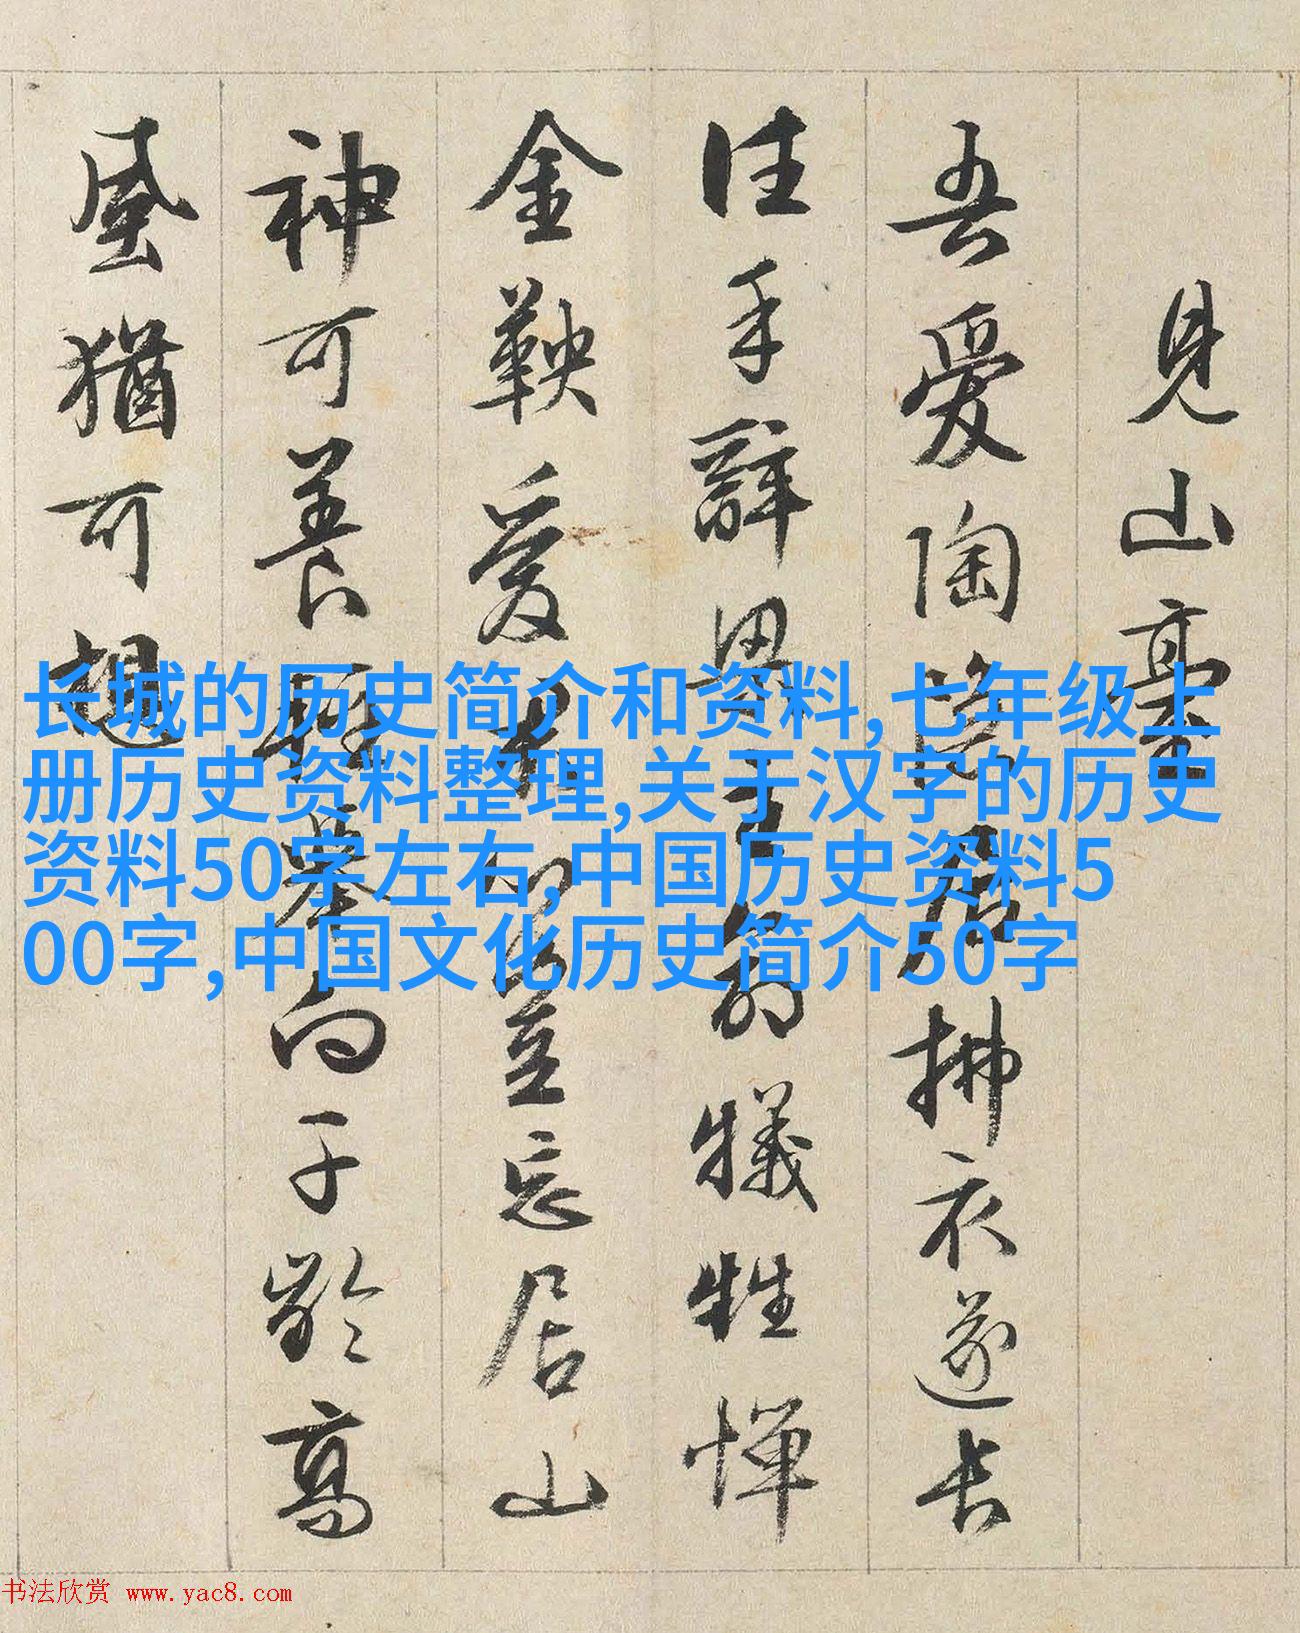 見山臺
吾愛陶隱居拂衣遂長
往手辭異主前犧牲憚
金鞅愛
豈忘居山
神可養
拳向千齡高
風猶可想
长城的历史简介和资料,七年级上
册历史资料整理,关于汉字的历史
资料50字左右,中国历史资料5
00字,中国文化历史简介50字
书法欣赏 www.yac8.com